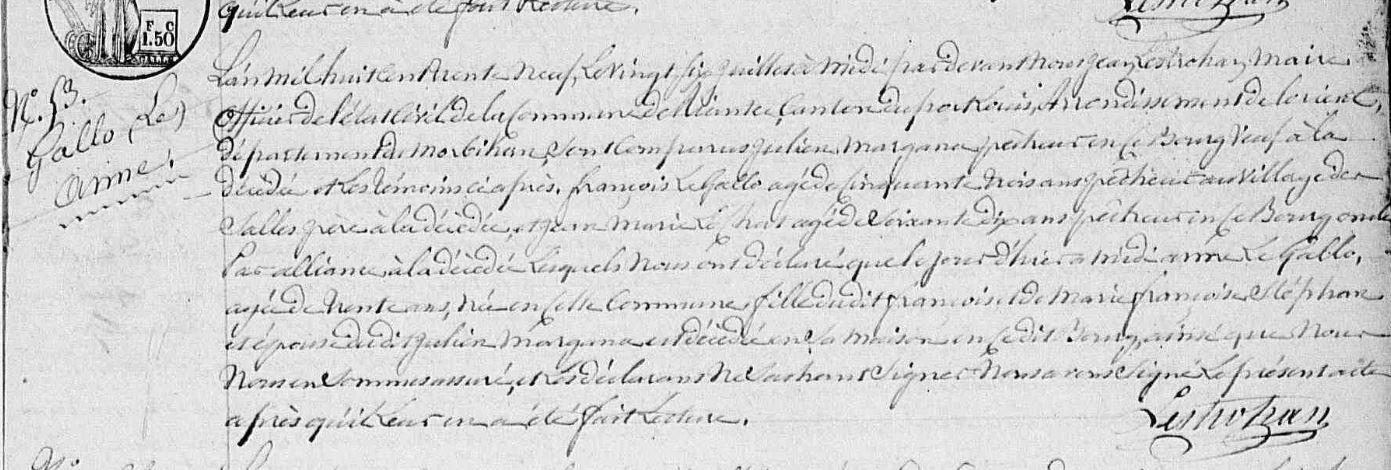 qu'il leur en a été fait Lecture.
Lestrohan
F. C
1.50
GALLE
N°. 53.
Gallo (Le)
anne.
L'an mil huit Cent trente neuf, Le vingt six juillet à midi par devant Nous Jean Lestrohan, Maire
Officier de l'état Civil de la Commune de Riantec, Canton du port Louis, Arrondissement de lorient,
département du Morbihan, sont Comparus Julien Margana pêcheur en ce Bourg Veuf à la
décédé et Les témoins ci après, françois Le Gallo agé de cinquante trois ans pêcheur au village des
Salles père à la décédée, et jean Marie Le agé de Soixante dix ans pêcheur en ce Bourg oncle
Par alliance à la décédé Lesquels Nous ont déclaré que le jour d'hier a midi anne Le Gallo,
agé de trente ans, Née en Cette Commune fille dudit françois et de Marie françoise Stéphan
et épouse dudit Julien Margana est décédé en Sa maison en Cedit Bourg ainsi que Nous
Nous en Sommes assuré, et Les déclarans Ne Sachant Signer Nous avons Signé Le présent acte
après qu'il Leur en a été fait Lecture.
Lestrohan
N°